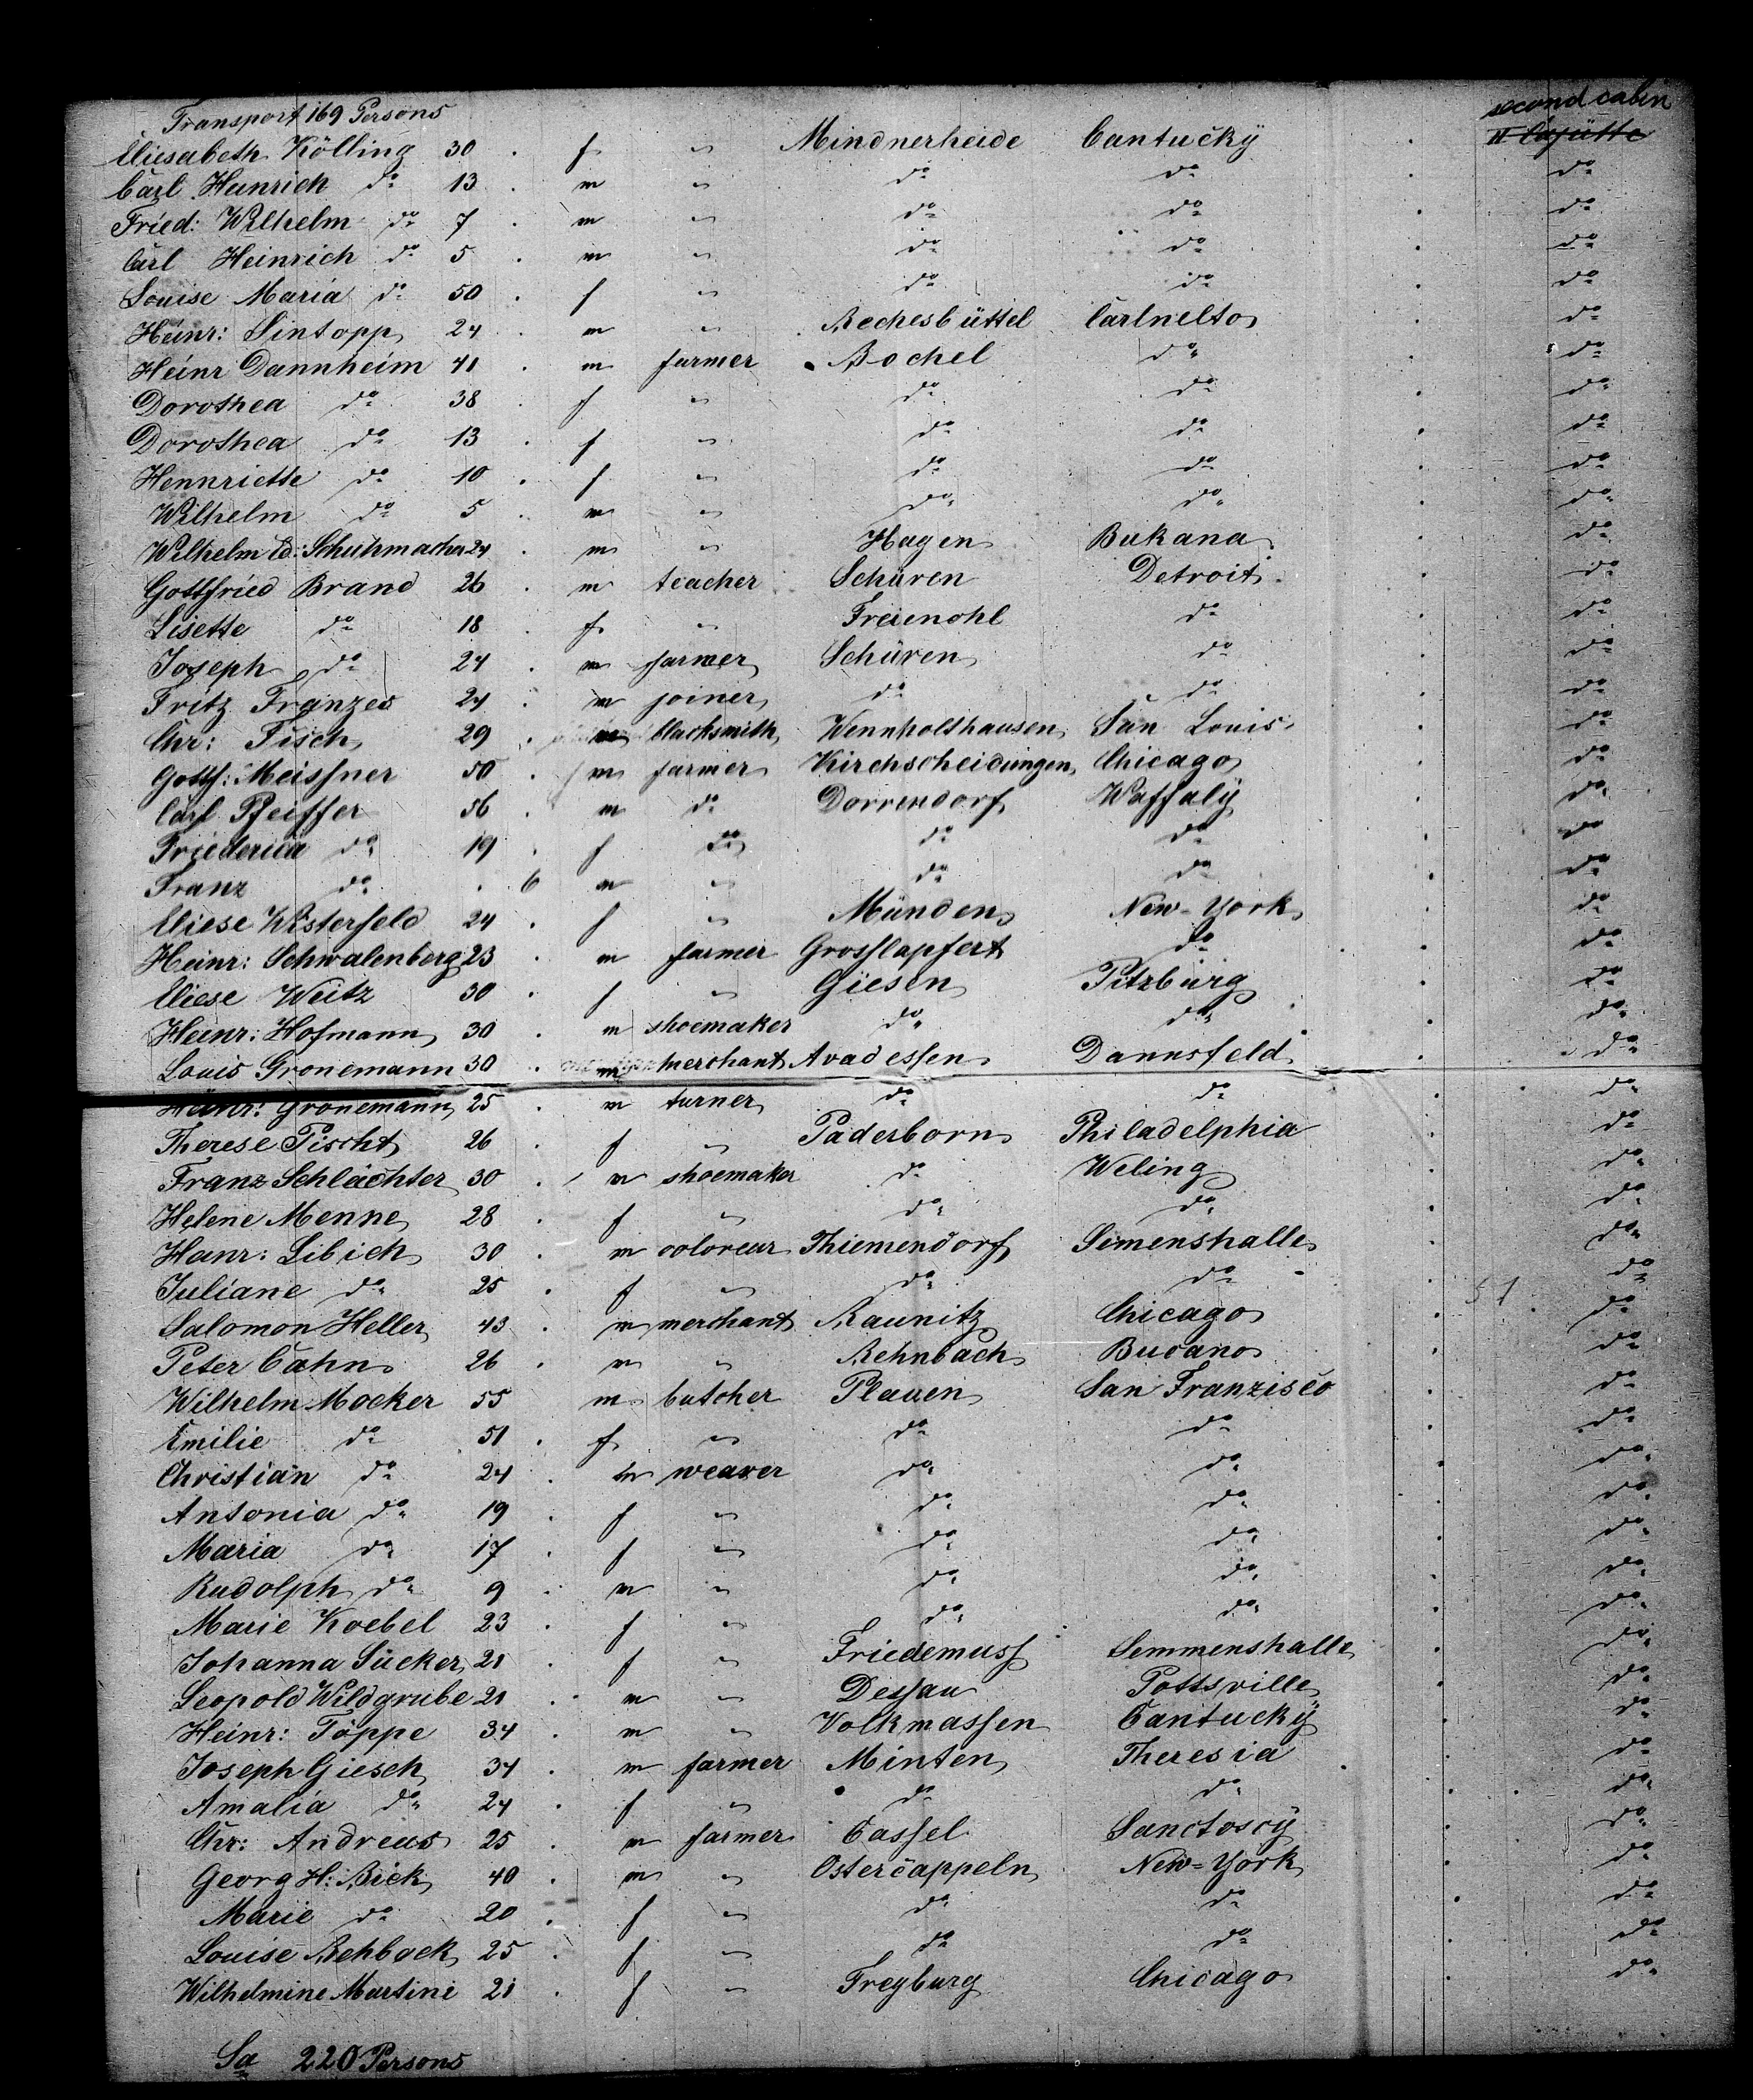 Transport 169 Persons second cabin
Eliesabeth Kölling 30 f " Mindnerheide Cantucky II Cajütte
Carl Heinrich do 13 m " do do do
Fried: Wilhelm do 7 m " do do do
Carl Heinrich do 5 m " do do do
Louise Maria do 50 f " do do do
Heinr: Sintopp 24 m " Rechesbüttel Carlnelto do
Heinr Dannheim 41 m farmer Bochel do do
Dorothea do 38 f " do do do
Dorothea do 13 f " do do do
Hennriette do 10 f " do do do
Wilhelm do 5 m " do do do
Wilhelm Ed: Schuhmacher 24 m " Hagen Bukana do
Gottfried Brand 26 m teacher Schüren Detroit do
Lisette do 18 f " Freienohl do do
Joseph do 24 m farmer Schüren do do
Fritz Franzes 24 m joiner do do do
Chr: Fisch 29 m blacksmith Wennholthausen San Louis do
Gottf: Meissner 50 m farmer Kirchscheidungen Chicago do
Carl Pfeiffer 56 m do Dorrendorf Waffaly do
Friederica do 19 f do do do do
Franz do 6 m " do do do
Eliese Westerfeld 24 f " Münden New-York do
Heinr: Schwalenberg 23 m farmer Grosslapfert do do
Eliese Weitz 30 f " Giesen Pitzburg do
Heinr: Hofmann 30 m shoemaker do do do
Louis Gronemann 30 m merchant Avadessen Dannsfeld do
Heinr: Gronemann 25 m turner do do do
Therese Pischt 26 f " Paderborn Philadelphia do
Franz Schlächter 30 m shoemaker do Weling do
Helene Menne 28 f " do do do
Heinr: Libich 30 m coloreur Thiemendorf Semenshalle do
Juliane do 25 f " do do do
Salomon Heller 43 m merchant Raunitz Chicago 51 do
Peter Cahn 26 m " Rehnbach Bucano do
Wilhelm Mocker 55 m butcher Plauen San Franzisco do
Emilie do 51 f " do do do
Christian do 24 m weaver do do do
Antonia do 19 f " do do do
Maria do 17 f " do do do
Rudolph do 9 m " do do do
Marie Koebel 23 f " do do do
Johanna Sücker 21 f " Friedemuss Semmenshalle do
Leopold Wildgrube 21 m " Dessau Pottsville do
Heinr: Töppe 34 m " Volkmassen Cantucky do
Joseph Giesch 34 m farmer Minten Theresia do
Amalia do 24 f " do do do
Chr: Andreas 25 m farmer Cassel Sanctoscy do
Georg H: Bick 40 m " Ostercappeln New-York do
Marie do 20 f " do do do
Louise Rehbock 25 f " do do do
Wilhelmine Martini 21 f " Freyburg Chicago do
Sa 220 Persons